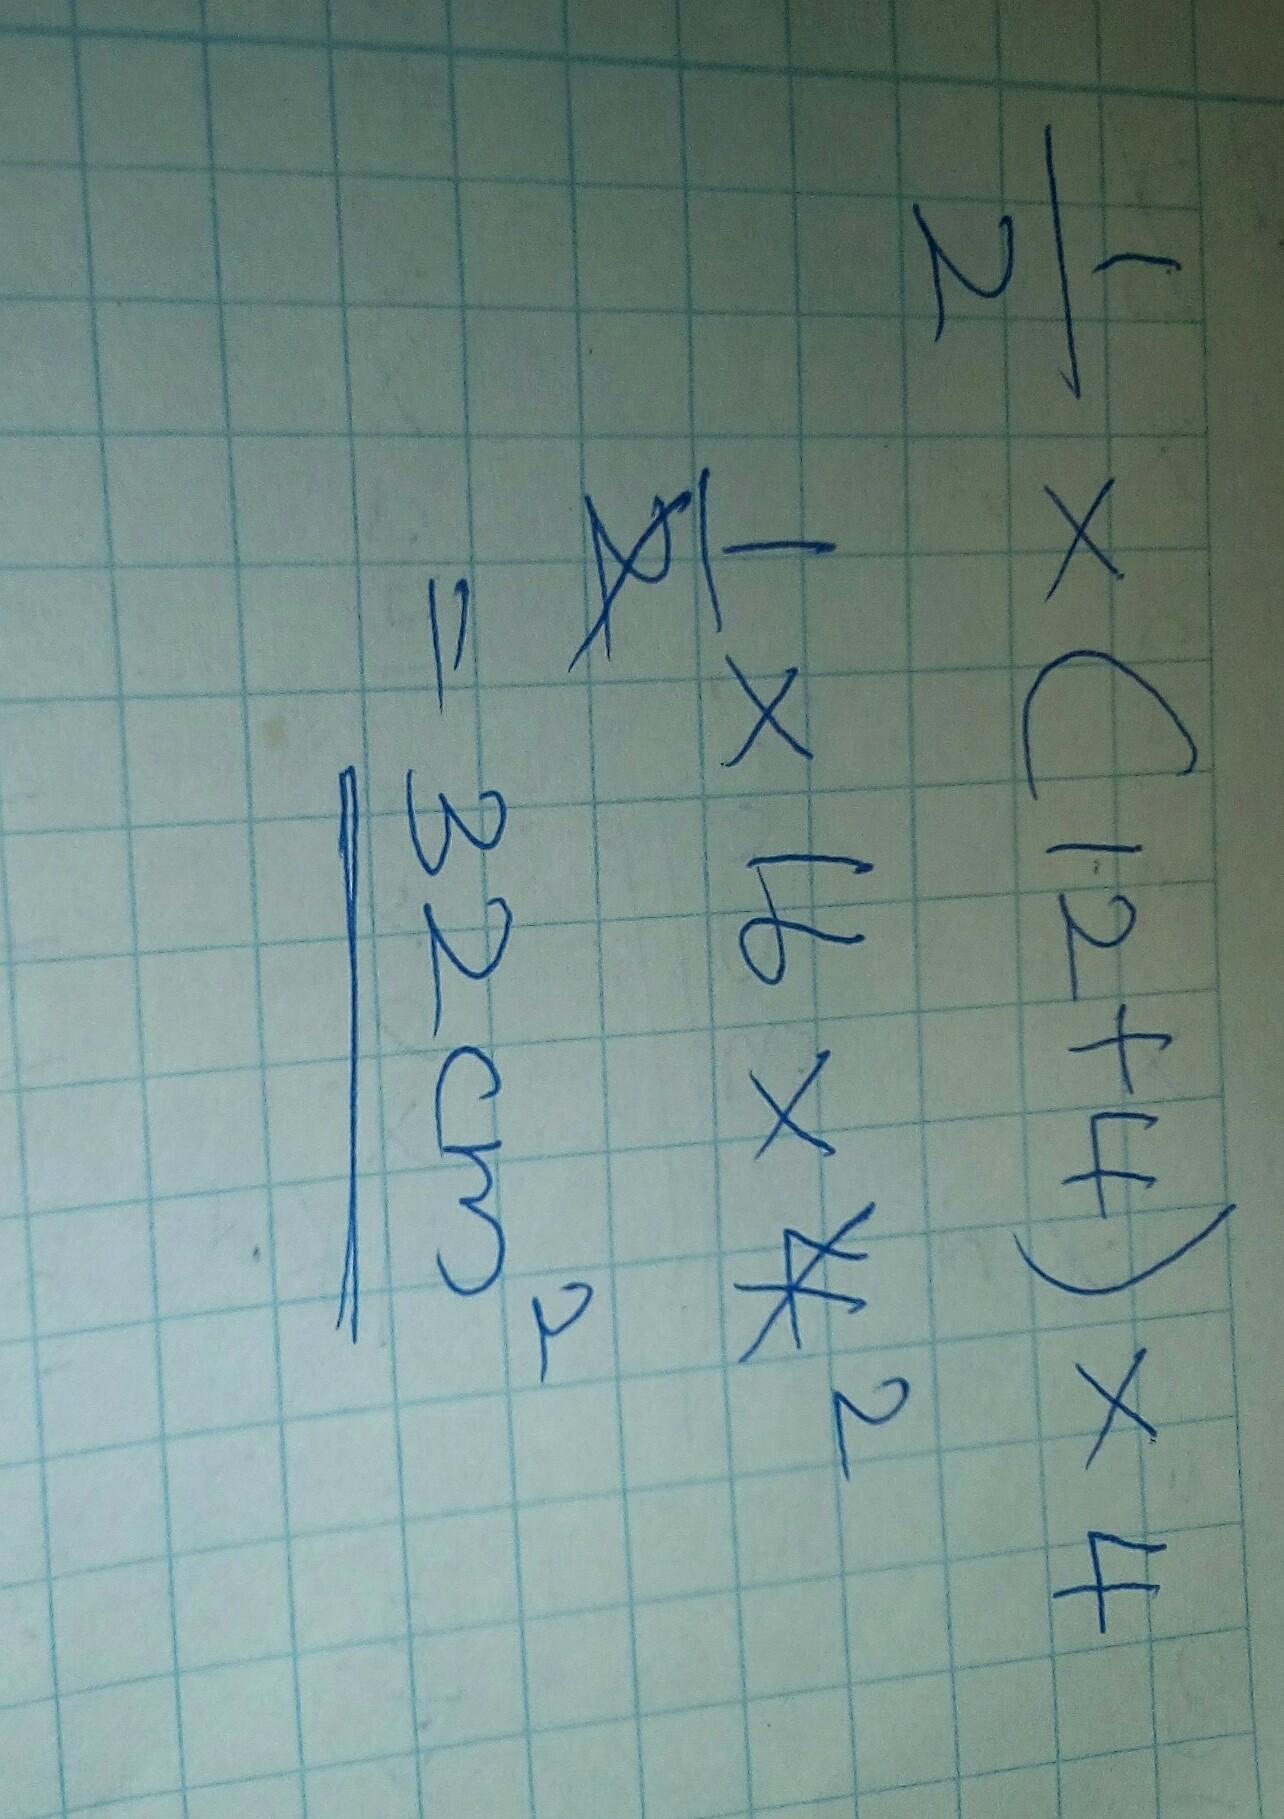 1/2 x (12+4) x 4
1/2 x 16 x 4 2
= 32cm²